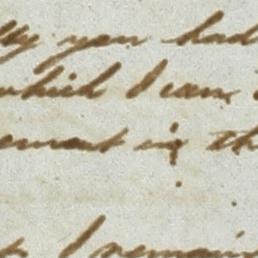 lly you had
which I can
ement in th
I remain